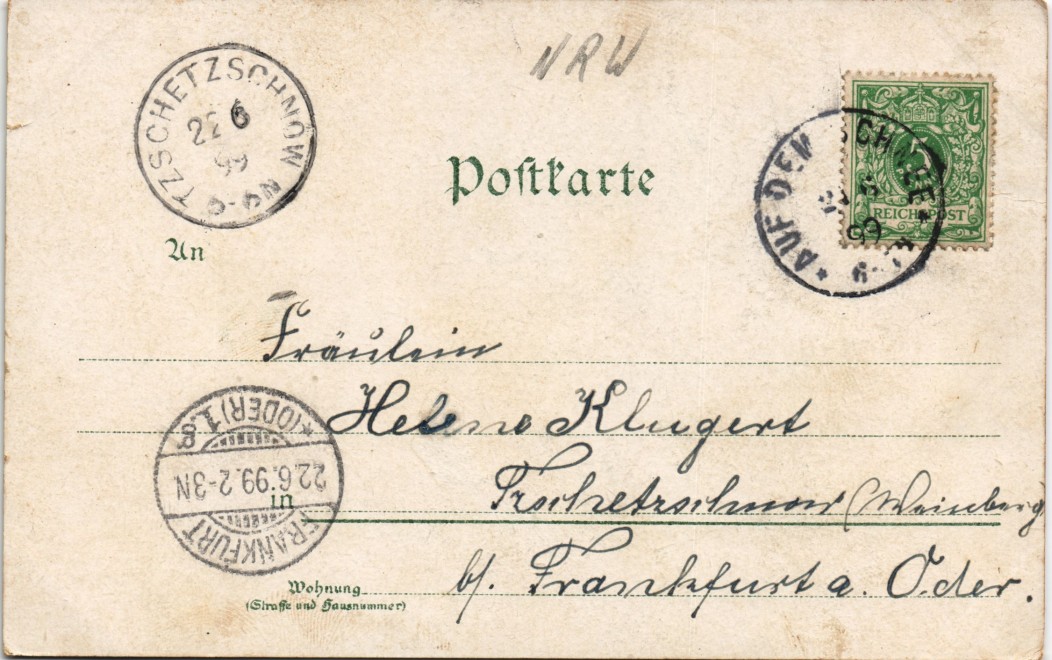 NRW
TZSCHETZSCHNOW
22 6
99
Postkarte
* AUF DEM SCHNEE *
5
REICHSPOST
An
Fräulein
Helene Klugert
Tzschetzschnow (Weinberg
in
b/. Frankfurt a. Oder.
FRANKFURT
22.6.99.2-3N
*(ODER)1.
Wohnung
(Straße und Hausnummer)